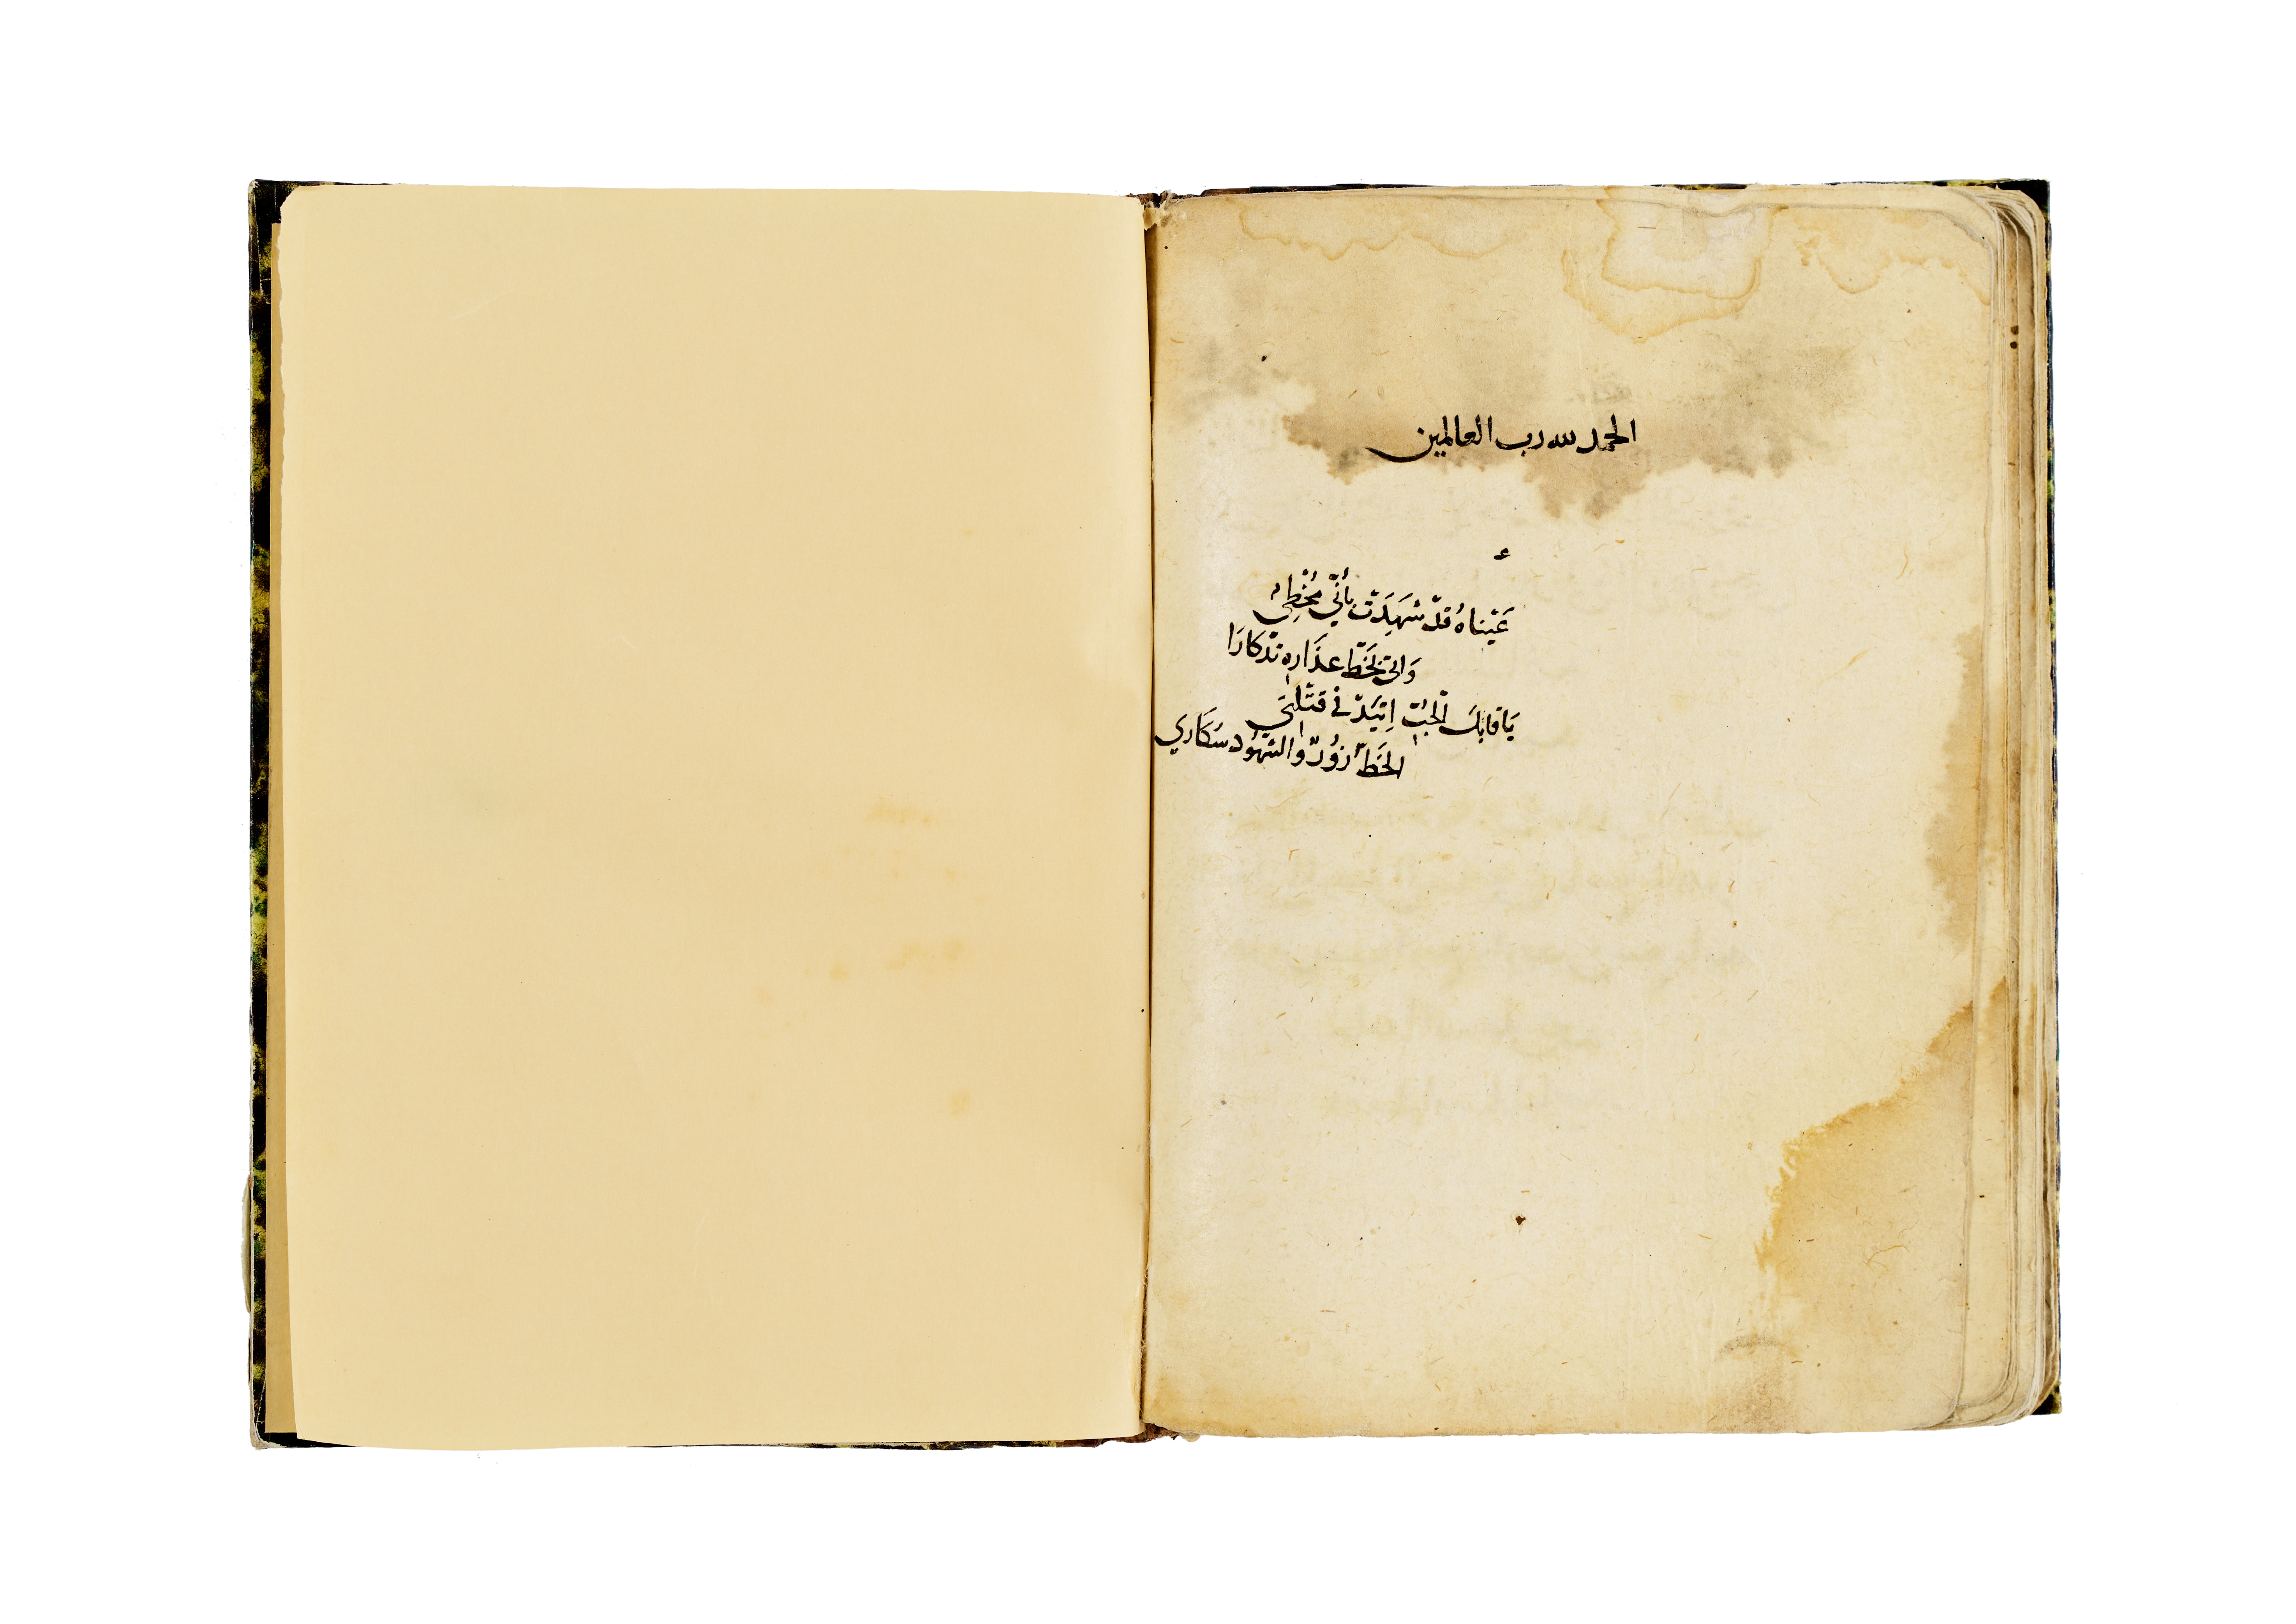 الحمد لله رب العالمين
عَيْناهُ قدْ شَهِدَتْ بأنّي مُخْطِئ
وَاتى بخَطّ عذَارِهِ تذكارَا
يَا قابكَ الحُبِّ اِتَّيِدْ في قتْلتي
الخَطُّ زوُرٌ والشهوُد سكَاري